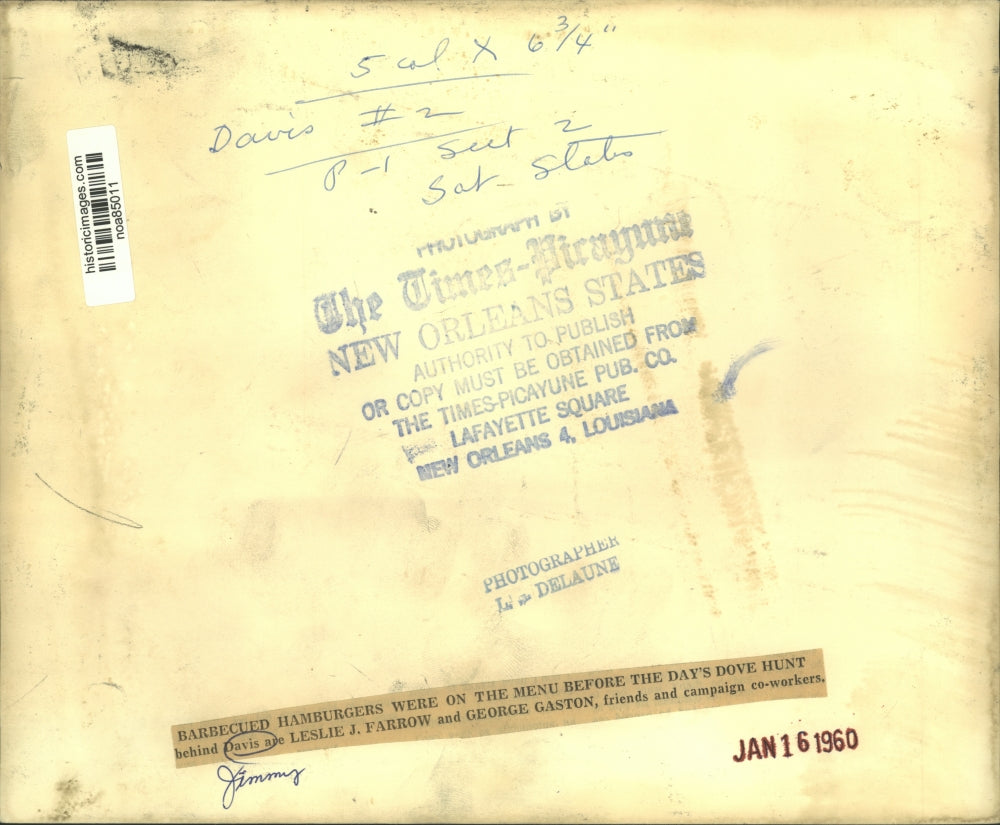 5 col X 6 3/4"
Davis #2
P-1 Sect 2
Sat - States
historicimages.com
noa85011
PHOTOGRAPH BY
The Times-Picayune
NEW ORLEANS STATES
AUTHORITY TO PUBLISH
OR COPY MUST BE OBTAINED FROM
THE TIMES-PICAYUNE PUB. CO.
LAFAYETTE SQUARE
NEW ORLEANS 4, LOUISIANA
PHOTOGRAPHER
DELAUNE
BARBECUED HAMBURGERS WERE ON THE MENU BEFORE THE DAY'S DOVE HUNT
behind Davis are LESLIE J. FARROW and GEORGE GASTON, friends and campaign co-workers.
Jimmy
JAN 16 1960